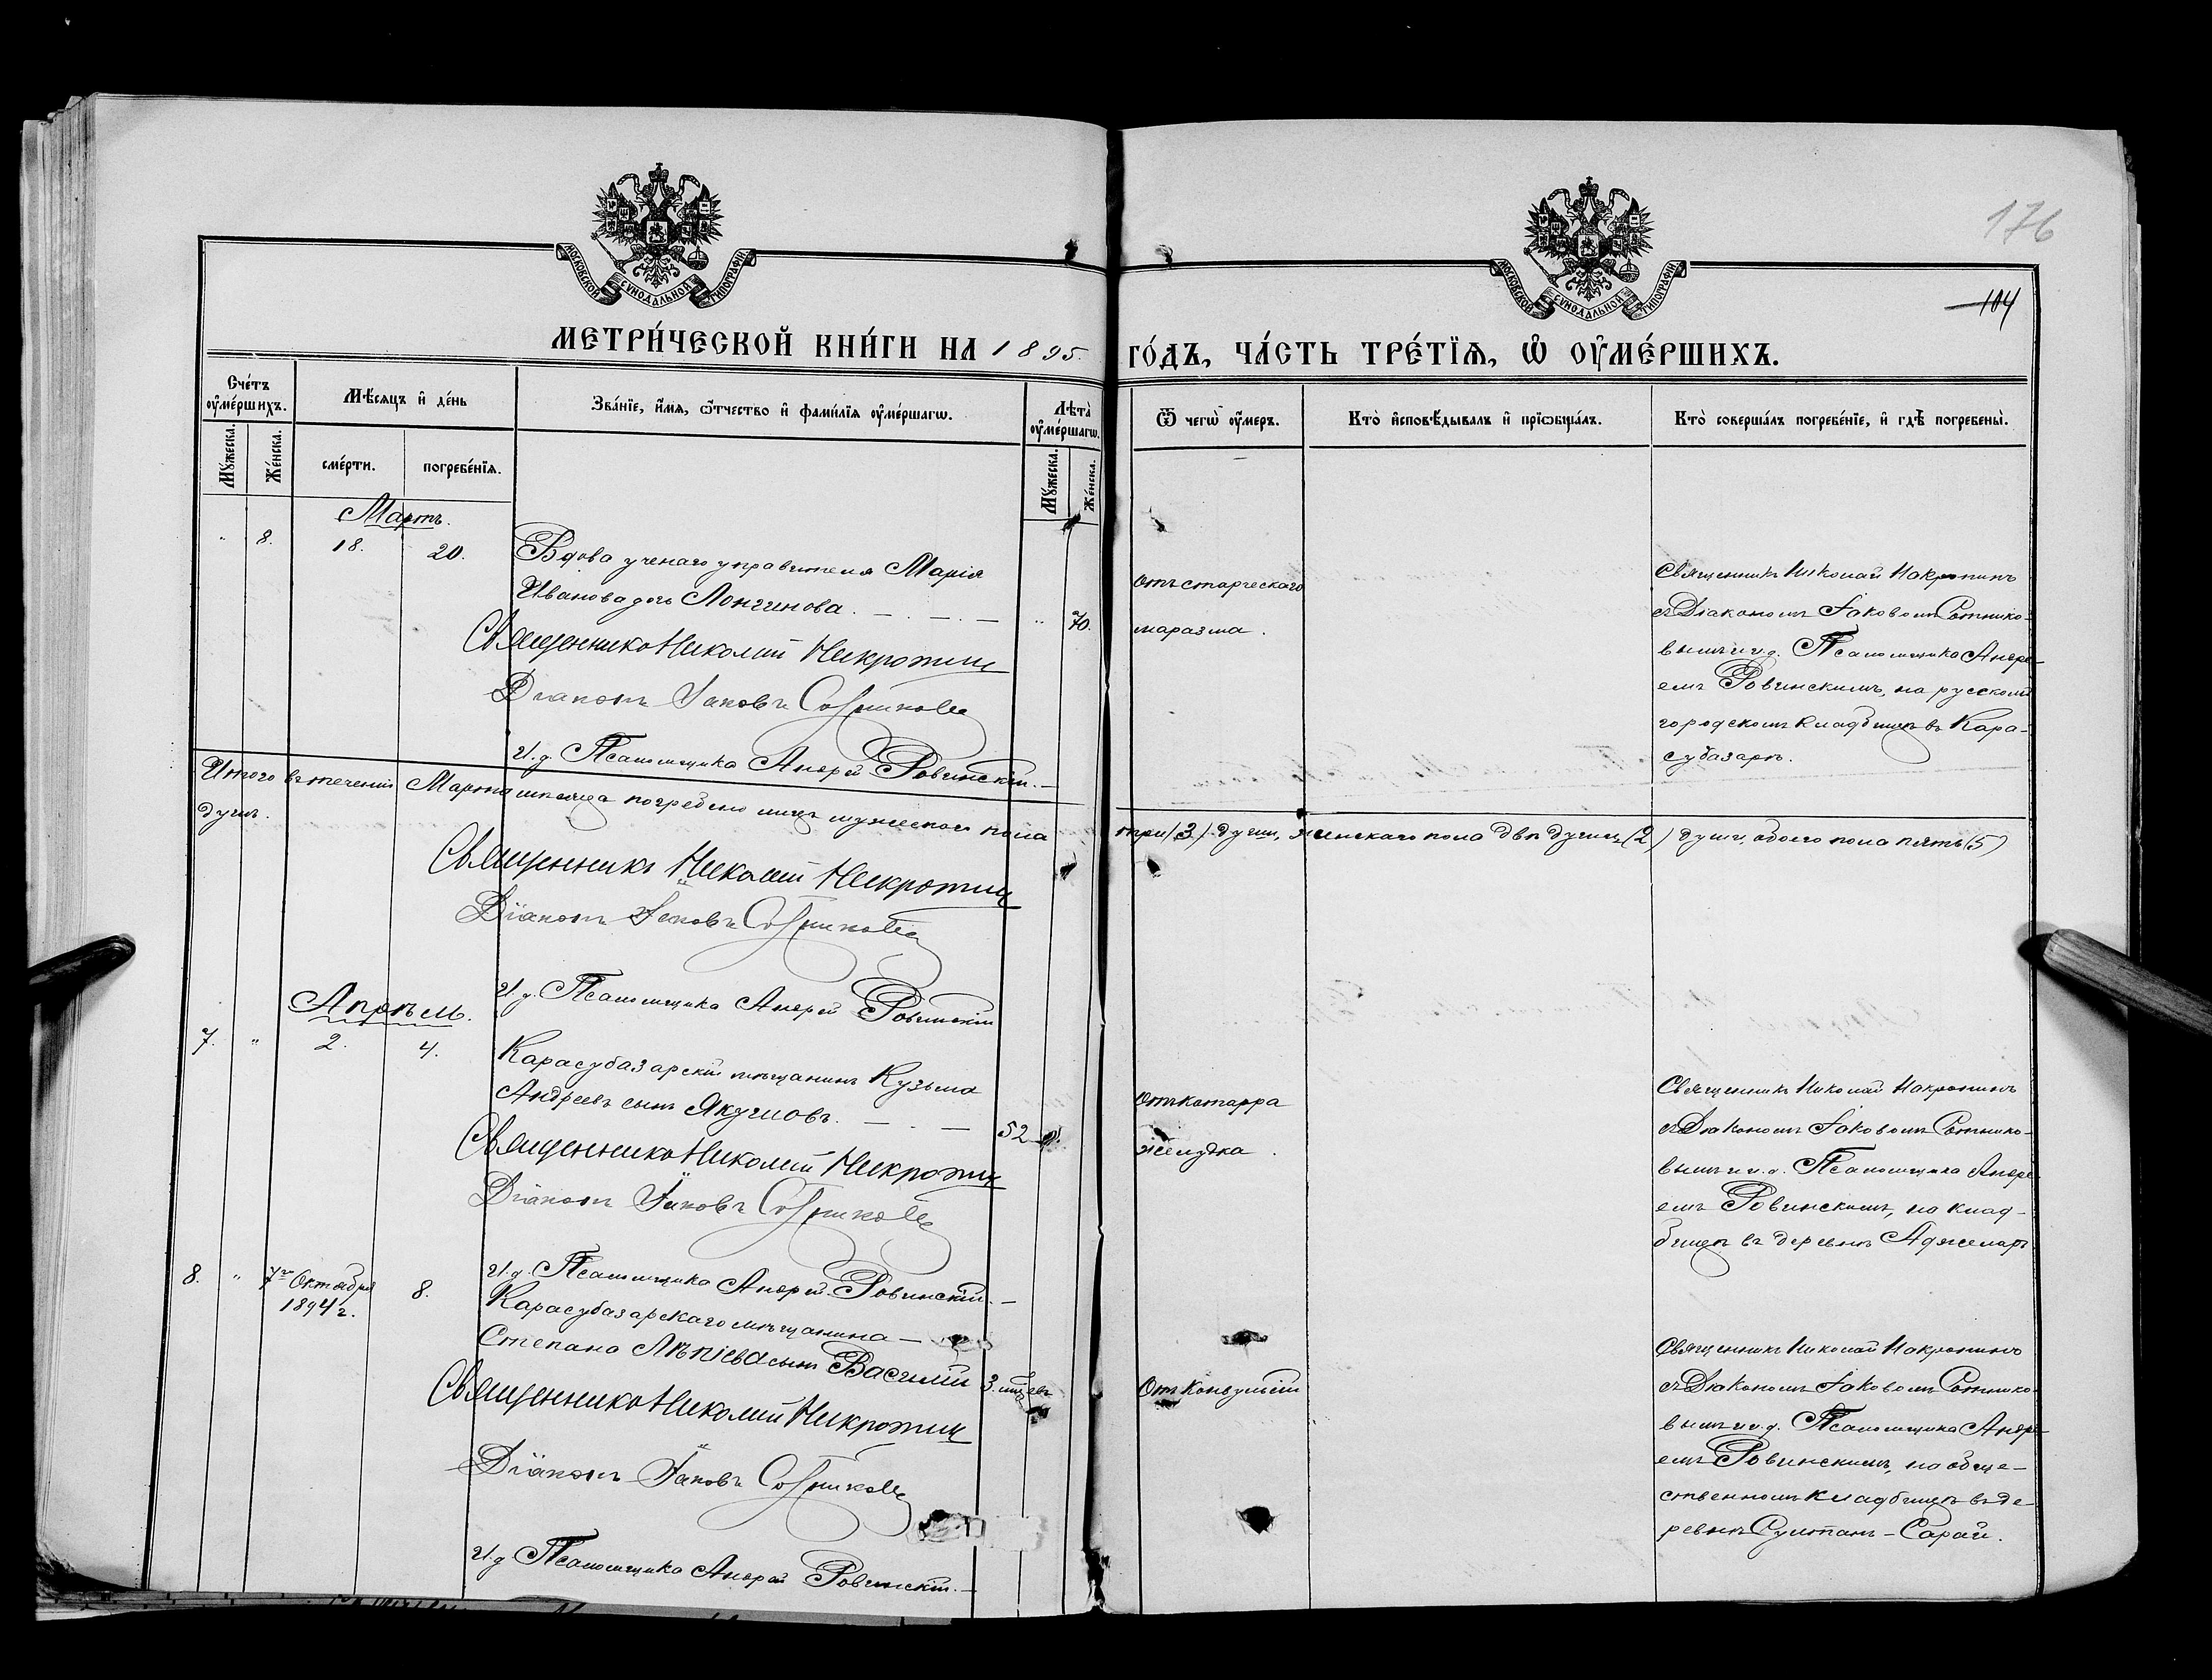 176
104
МОСКОВСКОЙ СѴНОДАЛЬНОЙ ТИПОГРАФІИ
МОСКОВСКОЙ СѴНОДАЛЬНОЙ ТИПОГРАФІИ
МЕТРИ́ЧЕСКОЙ КНИ́ГИ НА 1895.
ГО́ДЪ, ЧА́СТЬ ТРЕ́ТЇѦ, Ѡ҆ ОУ҆МЕ́РШИХЪ.
Сче́тъ оу҆ме́ршихъ.
Мꙋ́жеска.
Же́нска.
Мѣ́сяцъ и҆ де́нь
сме́рти.
погребе́нїѧ.
Зва́нїе, и҆́мѧ, ѻ҆́тчество и҆ фами́лїѧ оу҆ме́ршагѡ.
Лѣта̀ оу҆ме́ршагѡ.
Мꙋ́жеска.
Же́нска.
Ѿ чегѡ̀ оу҆́меръ.
Кто̀ и҆сповѣ́дывалъ и҆ прїѡбща́лъ.
Кто̀ соверша́лъ погребе́нїе, и҆ гдѣ̀ погребены̀.
Мартъ.
" 8. 18. 20.
Вдова ученаго управителя Марія
Иванова дочь Лонгинова.
" 70.
Священникъ Николай
Діаконъ Іаковъ Сотниковъ
И. д. Псаломщика Андрей Ровинскій.
Отъ старческаго
маразма.
Священникъ Николай
съ Діакономъ Іаковомъ Сотнико-
вымъ и и. д. Псаломщика Андре-
емъ Ровинскимъ, на русскомъ
городскомъ кладбищѣ въ Кара-
субазарѣ.
Итого въ теченіи Марта мѣсяца погребено лицъ мужеска пола
три (3) души, женскаго пола двѣ души (2) души, обоего пола пять (5)
душъ.
Священникъ Николай
Діаконъ Іаковъ Сотниковъ
И. д. Псаломщика Андрей Ровинскій
Апрѣль.
7. " 2. 4.
Карасубазарскій мѣщанинъ Кузьма
Андреевъ сынъ Якушовъ.
52
Священникъ Николай
Діаконъ Іаковъ Сотниковъ
И. д. Псаломщика Андрей Ровинскій.
Отъ катарра
желудка.
Священникъ Николай
съ Діакономъ Іаковомъ Сотнико-
вымъ и и. д. Псаломщика Андре-
емъ Ровинскимъ, на клад-
бищѣ въ деревнѣ
8. " 7го Октября
1894 г.
8.
Карасубазарскаго мѣщанина
Степана сынъ Василій
3.
Священникъ Николай
Діаконъ Іаковъ Сотниковъ
И. д. Псаломщика Андрей Ровинскій.
Отъ конвульсіи
Священникъ Николай
съ Діакономъ Іаковомъ Сотнико-
вымъ и и. д. Псаломщика Андре-
емъ Ровинскимъ, на обще-
ственномъ кладбищѣ въ де-
ревнѣ Султанъ-Сарай.